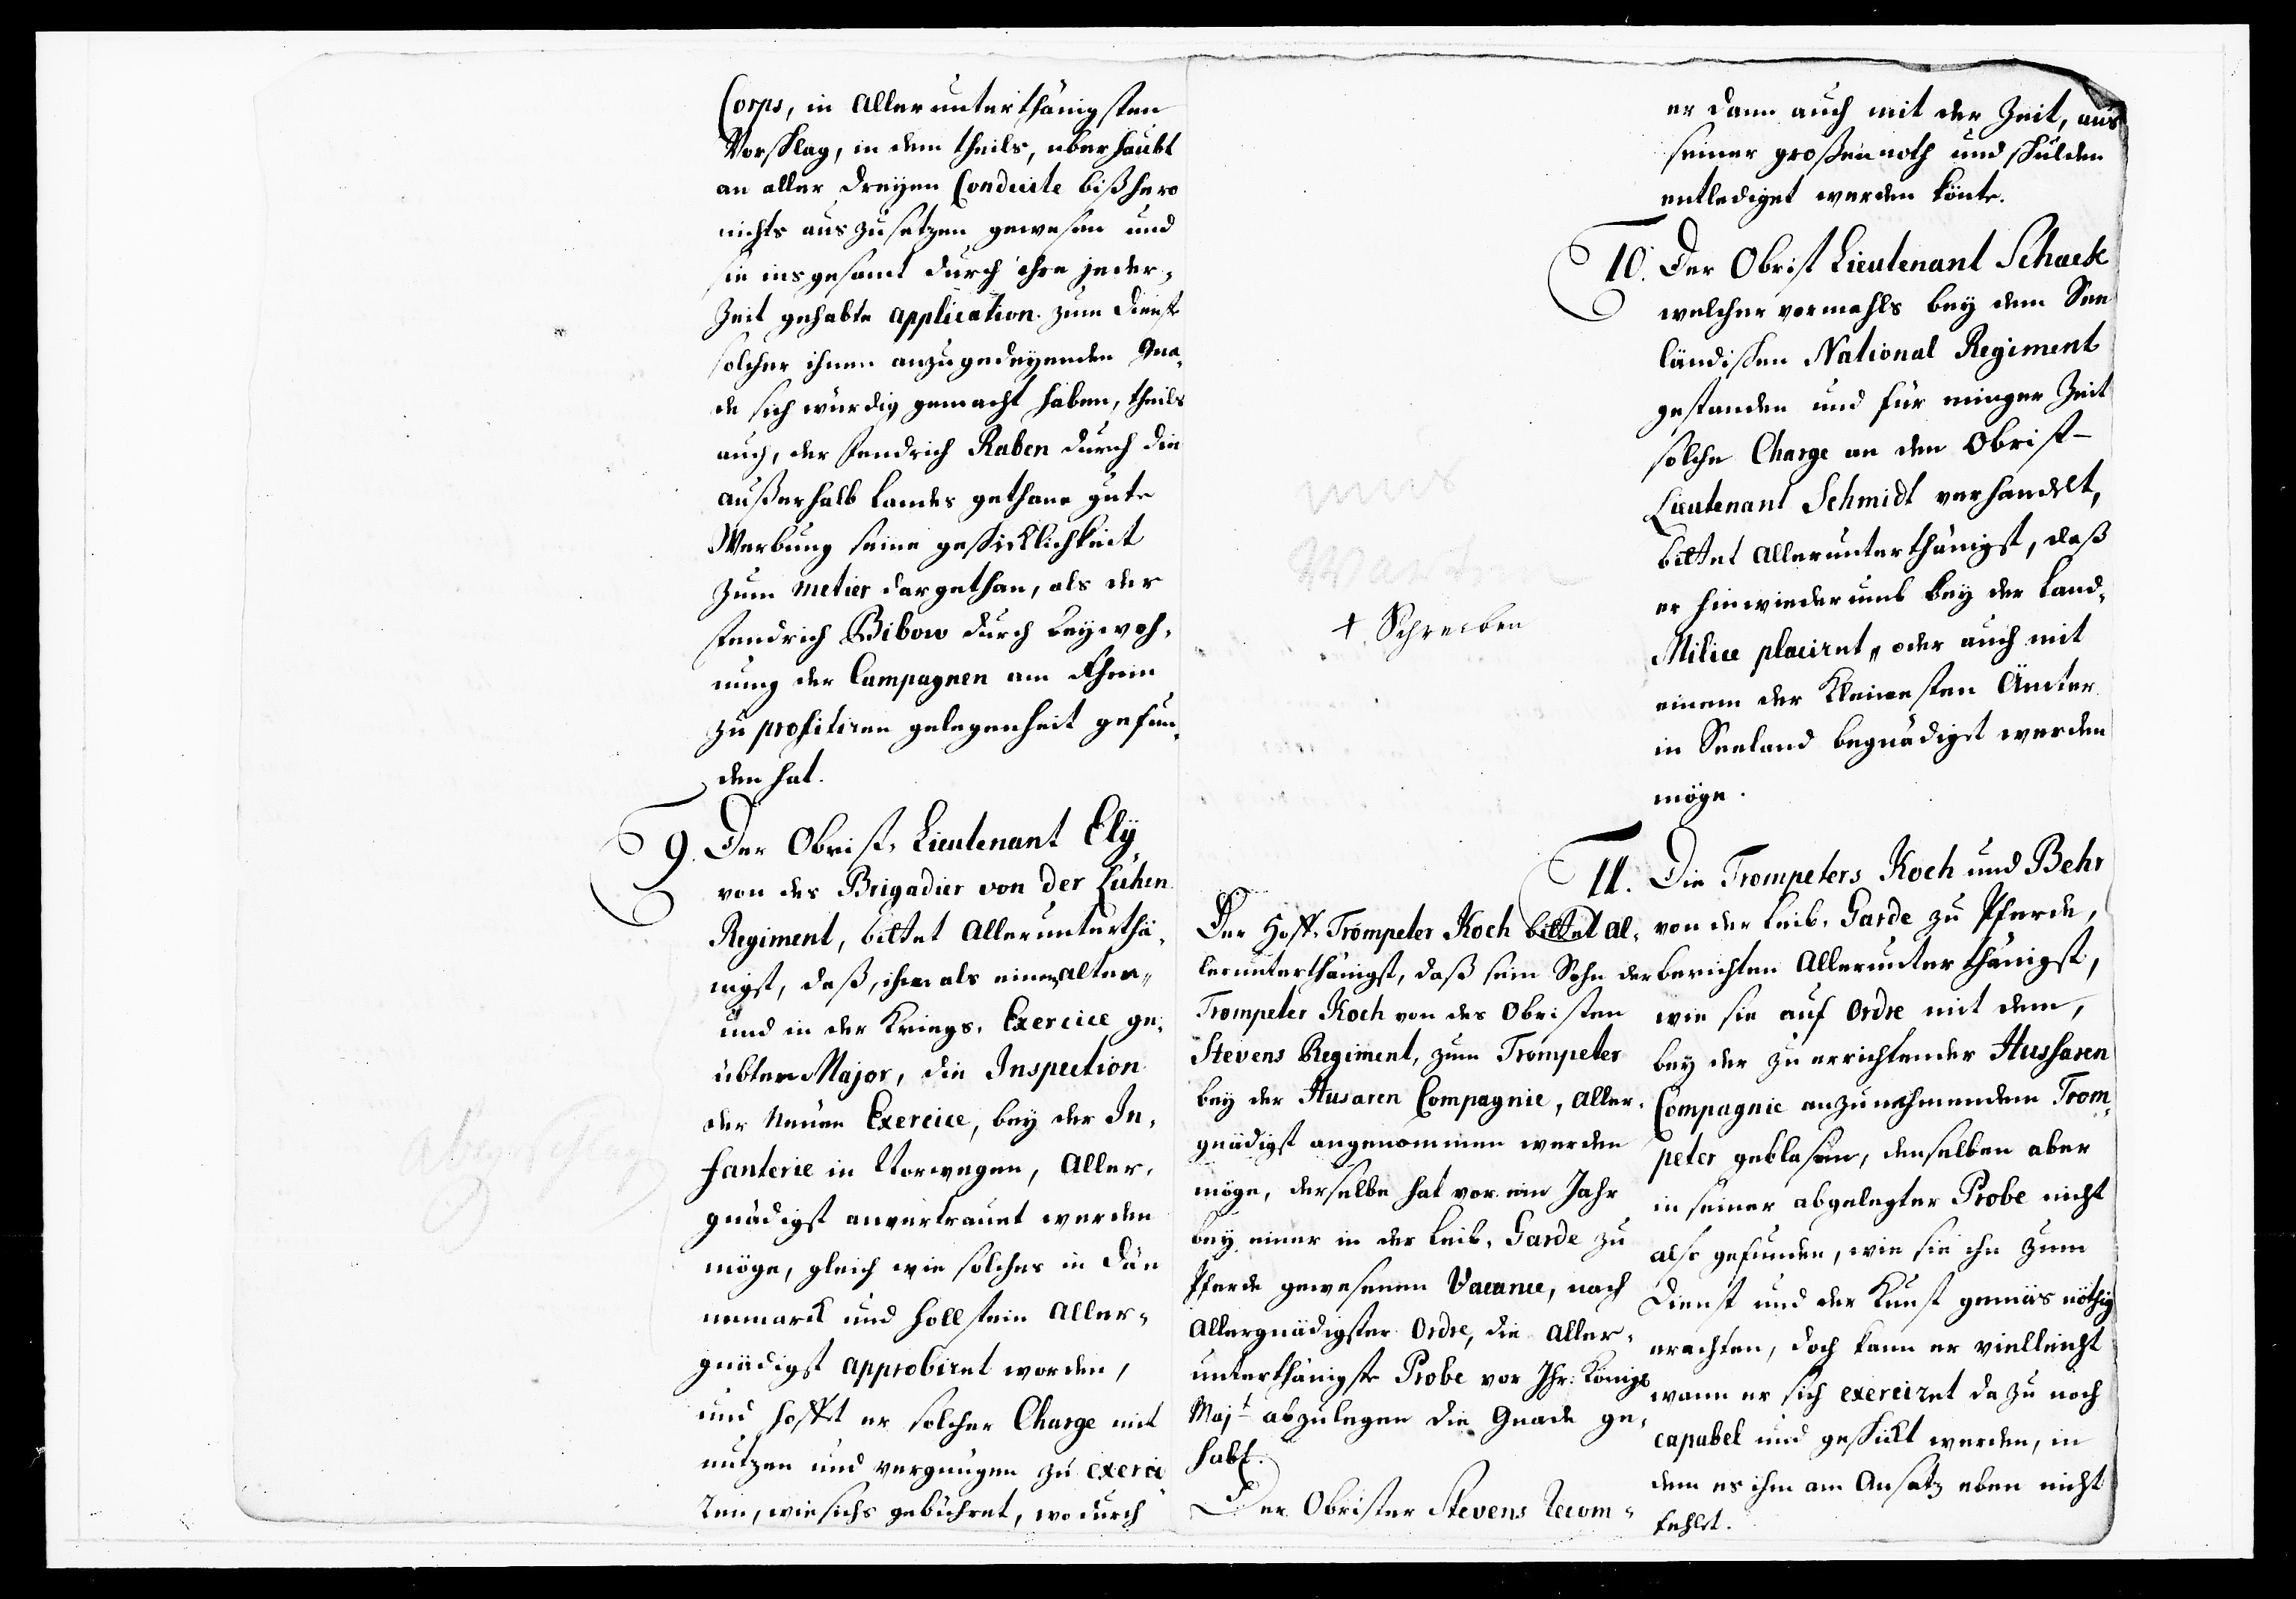 Corps, in allerunterthänigsten
Vorschlag, in dem theils, überhaubt
an aller dreyen Conduite bißhero
nichts auszusetzen gewesen und
sie insgesamt durch ihre jeder-
Zeit gehabte application zum Dienst
solcher ihnen anzugedeyenden Gna-
de sich würdig gemacht haben, theils
auch, der Fendrich Raben durch die
außerhalb Landes gethane gute
Werbung seine geschicklichkeit
zum metier dargethan, als der
Fendrich Bibow durch beywoh-
nung der Campagnen am Rhein
zu profitiren gelegenheit gefun-
den hat.
9. Der Obrist-Lieutenant Ely
von des Brigadier von der Lühen
Regiment, bittet Allerunterthä-
nigst, daß, ihm als einem alten-
und in der Kriegs-Exercice ge-
übten Major, die Inspection
der neuen Exercice, bey der In-
fanterie in Norwegen, Aller-
gnädigst anvertrauet werden
möge, gleich wie solches in Dän
nemarck und Hollstein Aller-
gnädigst approbiret worden,
und hoffet er solcher Charge mit
nutzen und vergnügen zu exerci
ren, wie sichs gebühret, wodurch
abgeschlag
er dann auch mit der Zeit, aus
seiner großen noth und schulden
entlediget werden könte.
10. Der Obrist Lieutenant Schack
welcher vormahls bey dem See
ländischen National Regiment
gestanden und für einiger Zeit
solche Charge an den Obrist-
Lieutenant Schmidt verhandelt,
bittet allerunterthänigst, daß
er hinwiederumb bey der Land-
Milice placiret, oder auch mit
einem der Kleinesten Ämter
in Seeland begnädiget werden
möge.
mus
Warten
+ Schreiben
11. Die Trompeters Koch und Behr
von der Leib-Garde zu Pferde,
berichten Allerunterthänigst,
wie sie auf Ordre mit dem,
bey der zu errichtender Hussaren
Compagnie anzunehmendem Trom-
peter geblasen, denselben aber
in seiner abgelegter Probe nicht
also gefunden, wie sie ihn zum
Dienst und der Kunst gemäs nöthig
erachten, doch kann er vielleicht
wann er sich exerciret dazu noch
capabel und geschickt werden, in
dem es ihm am Ansatz eben nicht
fehlet.
Der Hoff-Trompeter Koch bittet al-
lerunterthänigst, daß sein Sohn der
Trompeter Koch von des Obristen
Stevens Regiment, zum Trompeter
bey der Husaren Compagnie, Aller-
gnädigst angenommen werden
möge, derselbe hat vor ein Jahr
bey einer in der Leib-Garde zu
Pferde gewesenen Vacance, nach
Allergnädigster Ordre, die Aller-
unterthänigste Probe vor Ihr: Königs
Majt abzulegen die Gnade ge-
habt.
Der Obrister Stevens recom-